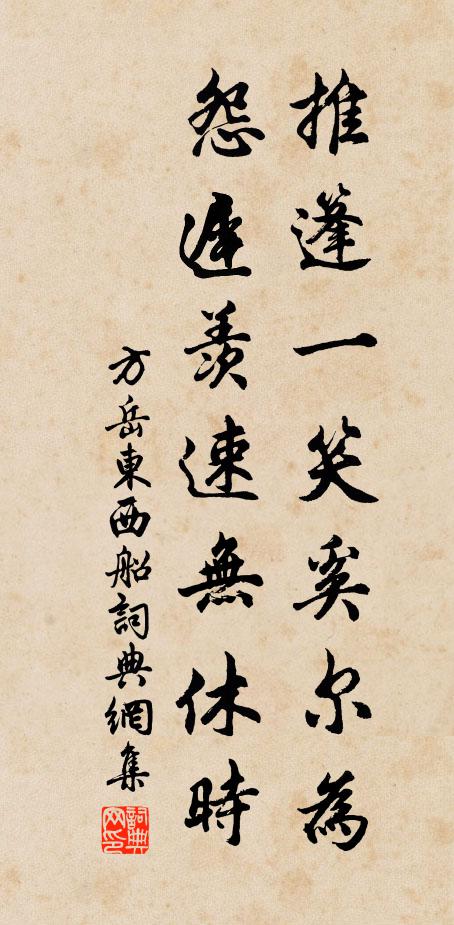 推篷一笑奚尔為
怨遲羨速無休時
方岳東西船詞典網集
詞典网印